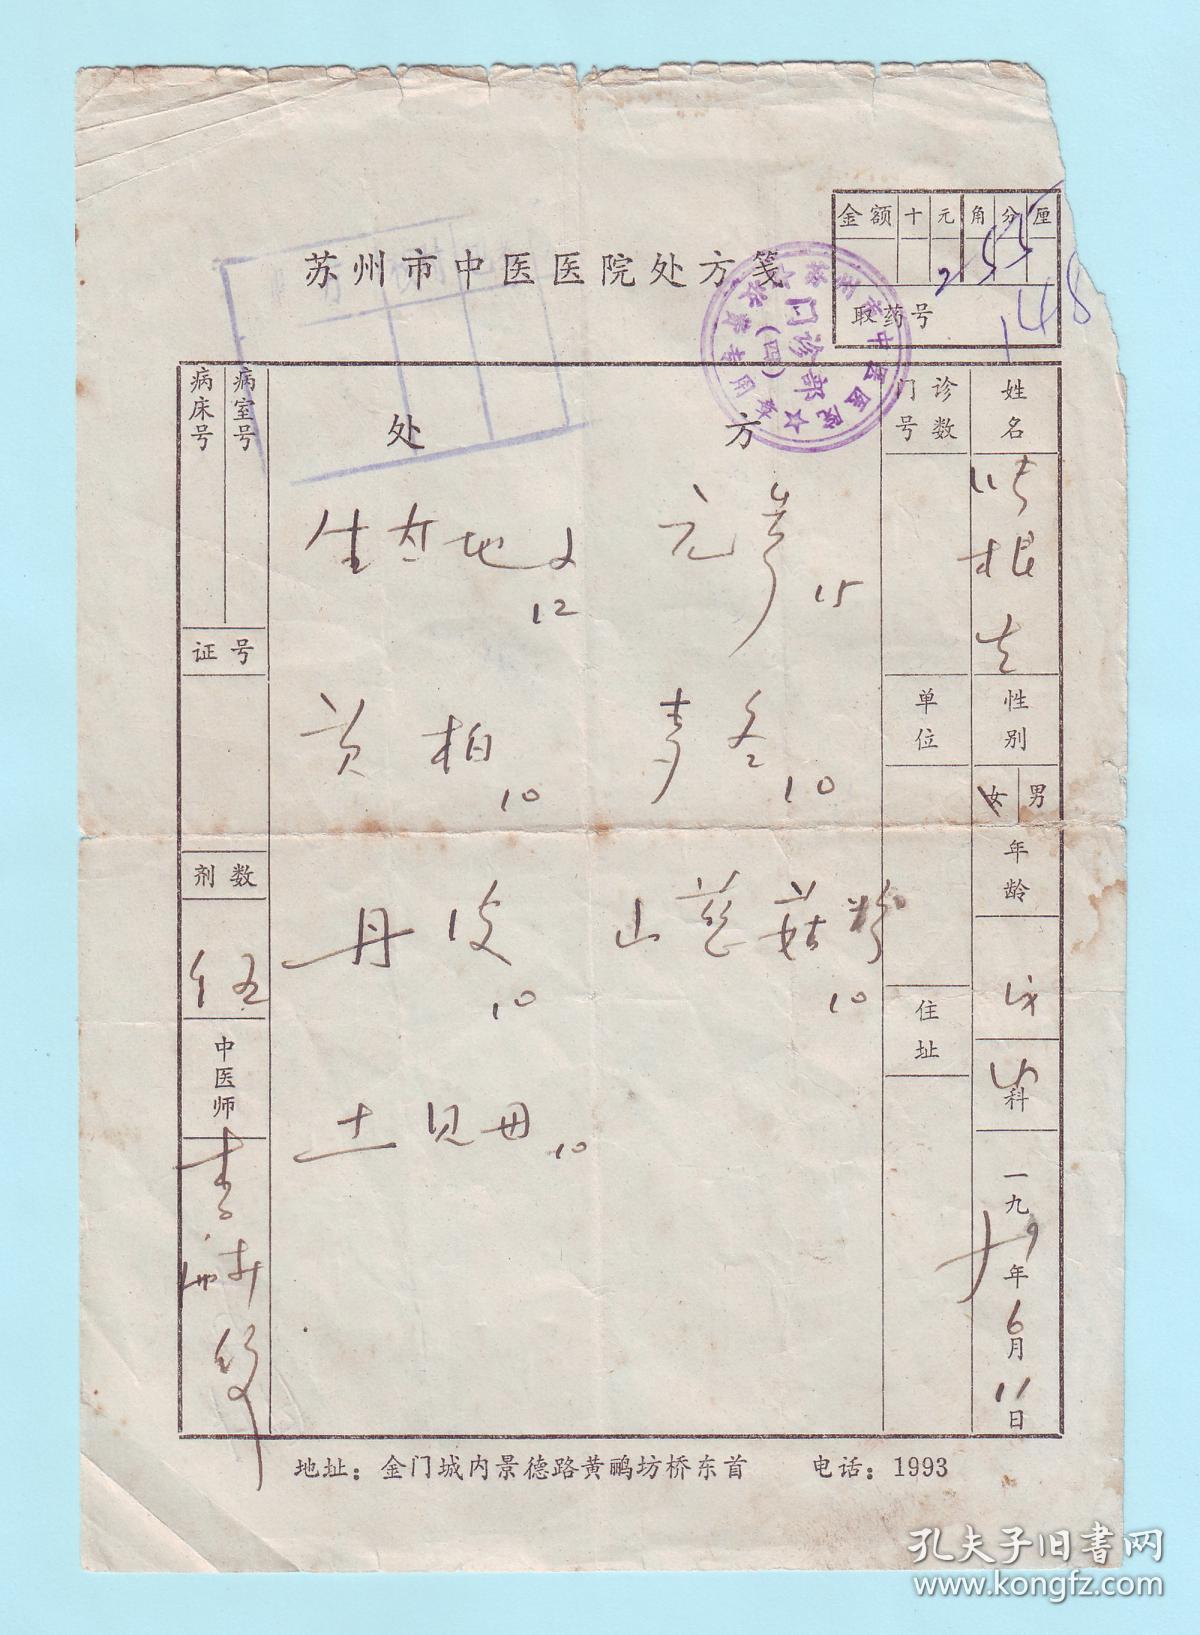 金额 十 元 角 分 厘
2 5 5
取药号
148
苏州市中医医院处方笺
苏州市中医医院
门诊部
(四)
公费专用章
姓名
根
性别
女 男
年龄
科
一九79年6月11日
门诊号数
单位
住址
处方
生大地 12
元参 15
黄柏 10
麦冬 10
丹皮 10
山慈菇 10
土贝母 10
病室号
病床号
证号
剂数
伍
中医师
地址：金门城内景德路黄鹂坊桥东首 电话：1993
孔夫子旧书网
www.kongfz.com